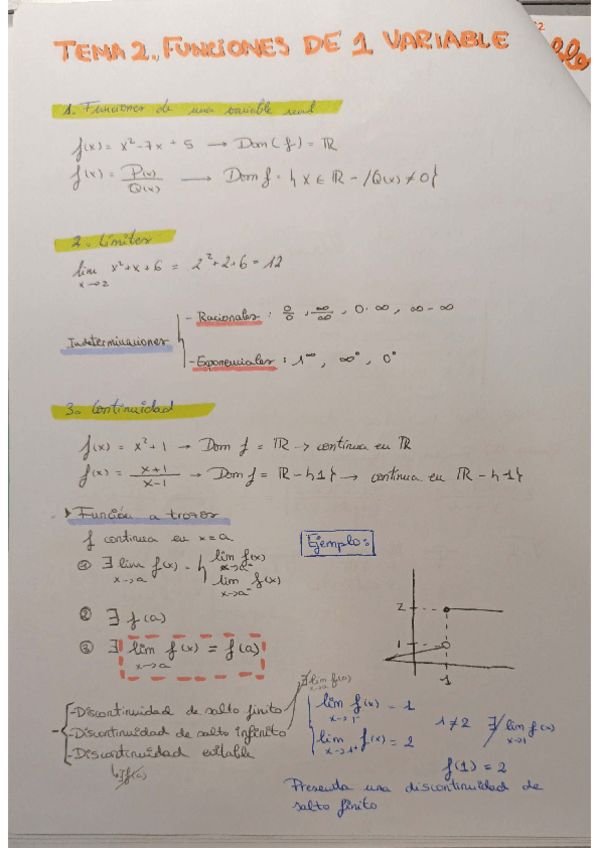 TEMA 2. FUNCIONES DE 1 VARIABLE
1. Funciones de una variable real
f(x) = x²-7x+5 → Dom(f) = ℝ
f(x) = P(x)/Q(x) → Dom f = { x ∈ ℝ - /Q(x) ≠ 0}
2. Límites
lim x→2 x²+x+6 = 2²+2+6 = 12
Indeterminaciones
- Racionales : 0/0, ∞/∞, 0·∞, ∞-∞
- Exponenciales : 1^∞, ∞⁰, 0⁰
3. Continuidad
f(x) = x²+1 → Dom f = ℝ → continua en ℝ
f(x) = x+1/x-1 → Dom f = ℝ - {1} → continua en ℝ - {1}
Función a trozos
f continua en x=a
① ∃ lim x→a f(x) - { lim x→a⁻ f(x)
lim x→a⁻ f(x)
② ∃ f(a)
③ ∃ lim x→a f(x) = f(a)
- Discontinuidad de salto finito
- Discontinuidad de salto infinito
- Discontinuidad evitable
∄f(a)
∄ lim x→a f(a)
Ejemplo:
2
1
1
lim x→1⁻ f(x) = 1
lim x→1⁺ f(x) = 2
1≠2 ∄ lim x→1 f(x)
f(1) = 2
Presenta una discontinuidad de
salto finito